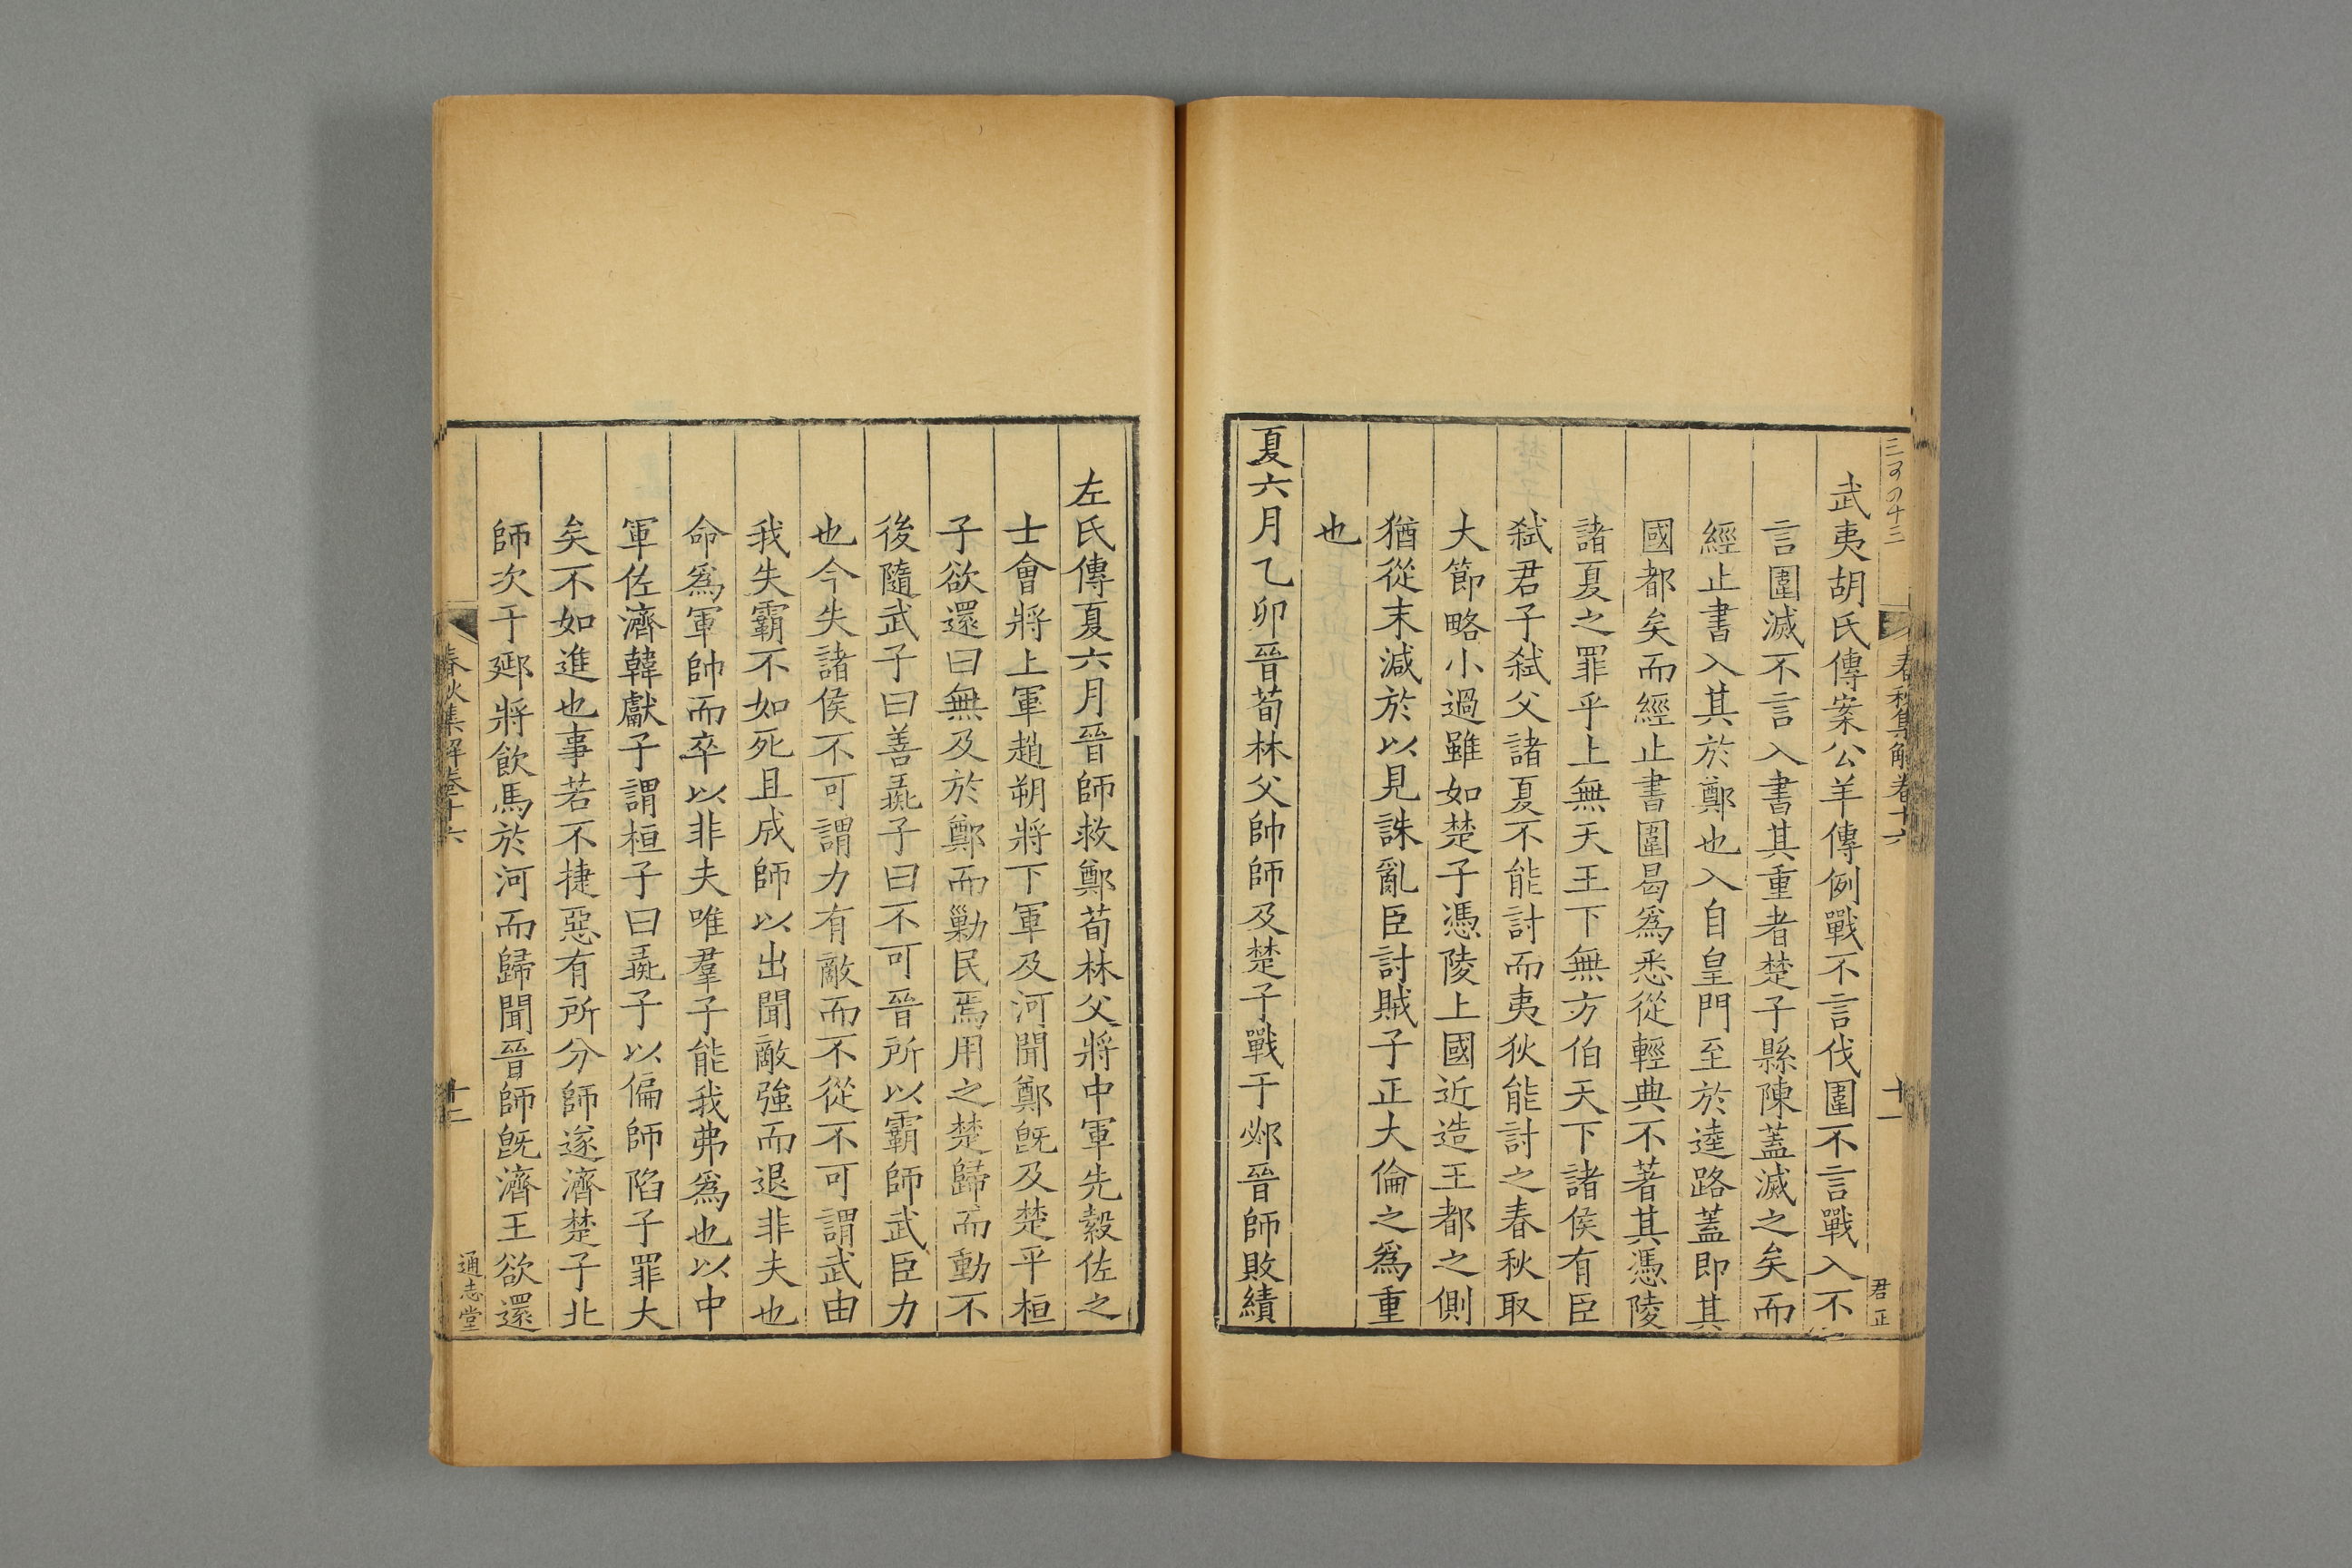 武夷胡氏傳案公羊傳例戰不言伐圍不言戰入不
言圍滅不言入書其重者楚子縣陳蓋滅之矣而
經止書入其於鄭也入自皇門至於逵路蓋即其
國都矣而經止書圍曷爲悉從輕典不著其憑陵
諸夏之罪乎上無天王下無方伯天下諸侯有臣
弑君子弑父諸夏不能討而夷狄能討之春秋取
大節略小過雖如楚子憑陵上國近造王都之側
猶從末減於以見誅亂臣討賊子正大倫之爲重
也
夏六月乙卯晉荀林父帥師及楚子戰于邲晉師敗績
春秋集解卷十六
十一
君正
左氏傳夏六月晉師救鄭荀林父將中軍先縠佐之
士會將上軍趙朔將下軍及河聞鄭旣及楚平桓
子欲還曰無及於鄭而勦民焉用之楚歸而動不
後隨武子曰善彘子曰不可晉所以霸師武臣力
也今失諸侯不可謂力有敵而不從不可謂武由
我失霸不如死且成師以出聞敵強而退非夫也
命爲軍帥而卒以非夫唯羣子能我弗爲也以中
軍佐濟韓獻子謂桓子曰彘子以偏師陷子罪大
矣不如進也事若不捷惡有所分師遂濟楚子北
師次于郔將飲馬於河而歸聞晉師旣濟王欲還
春秋集解卷十六
十二
通志堂